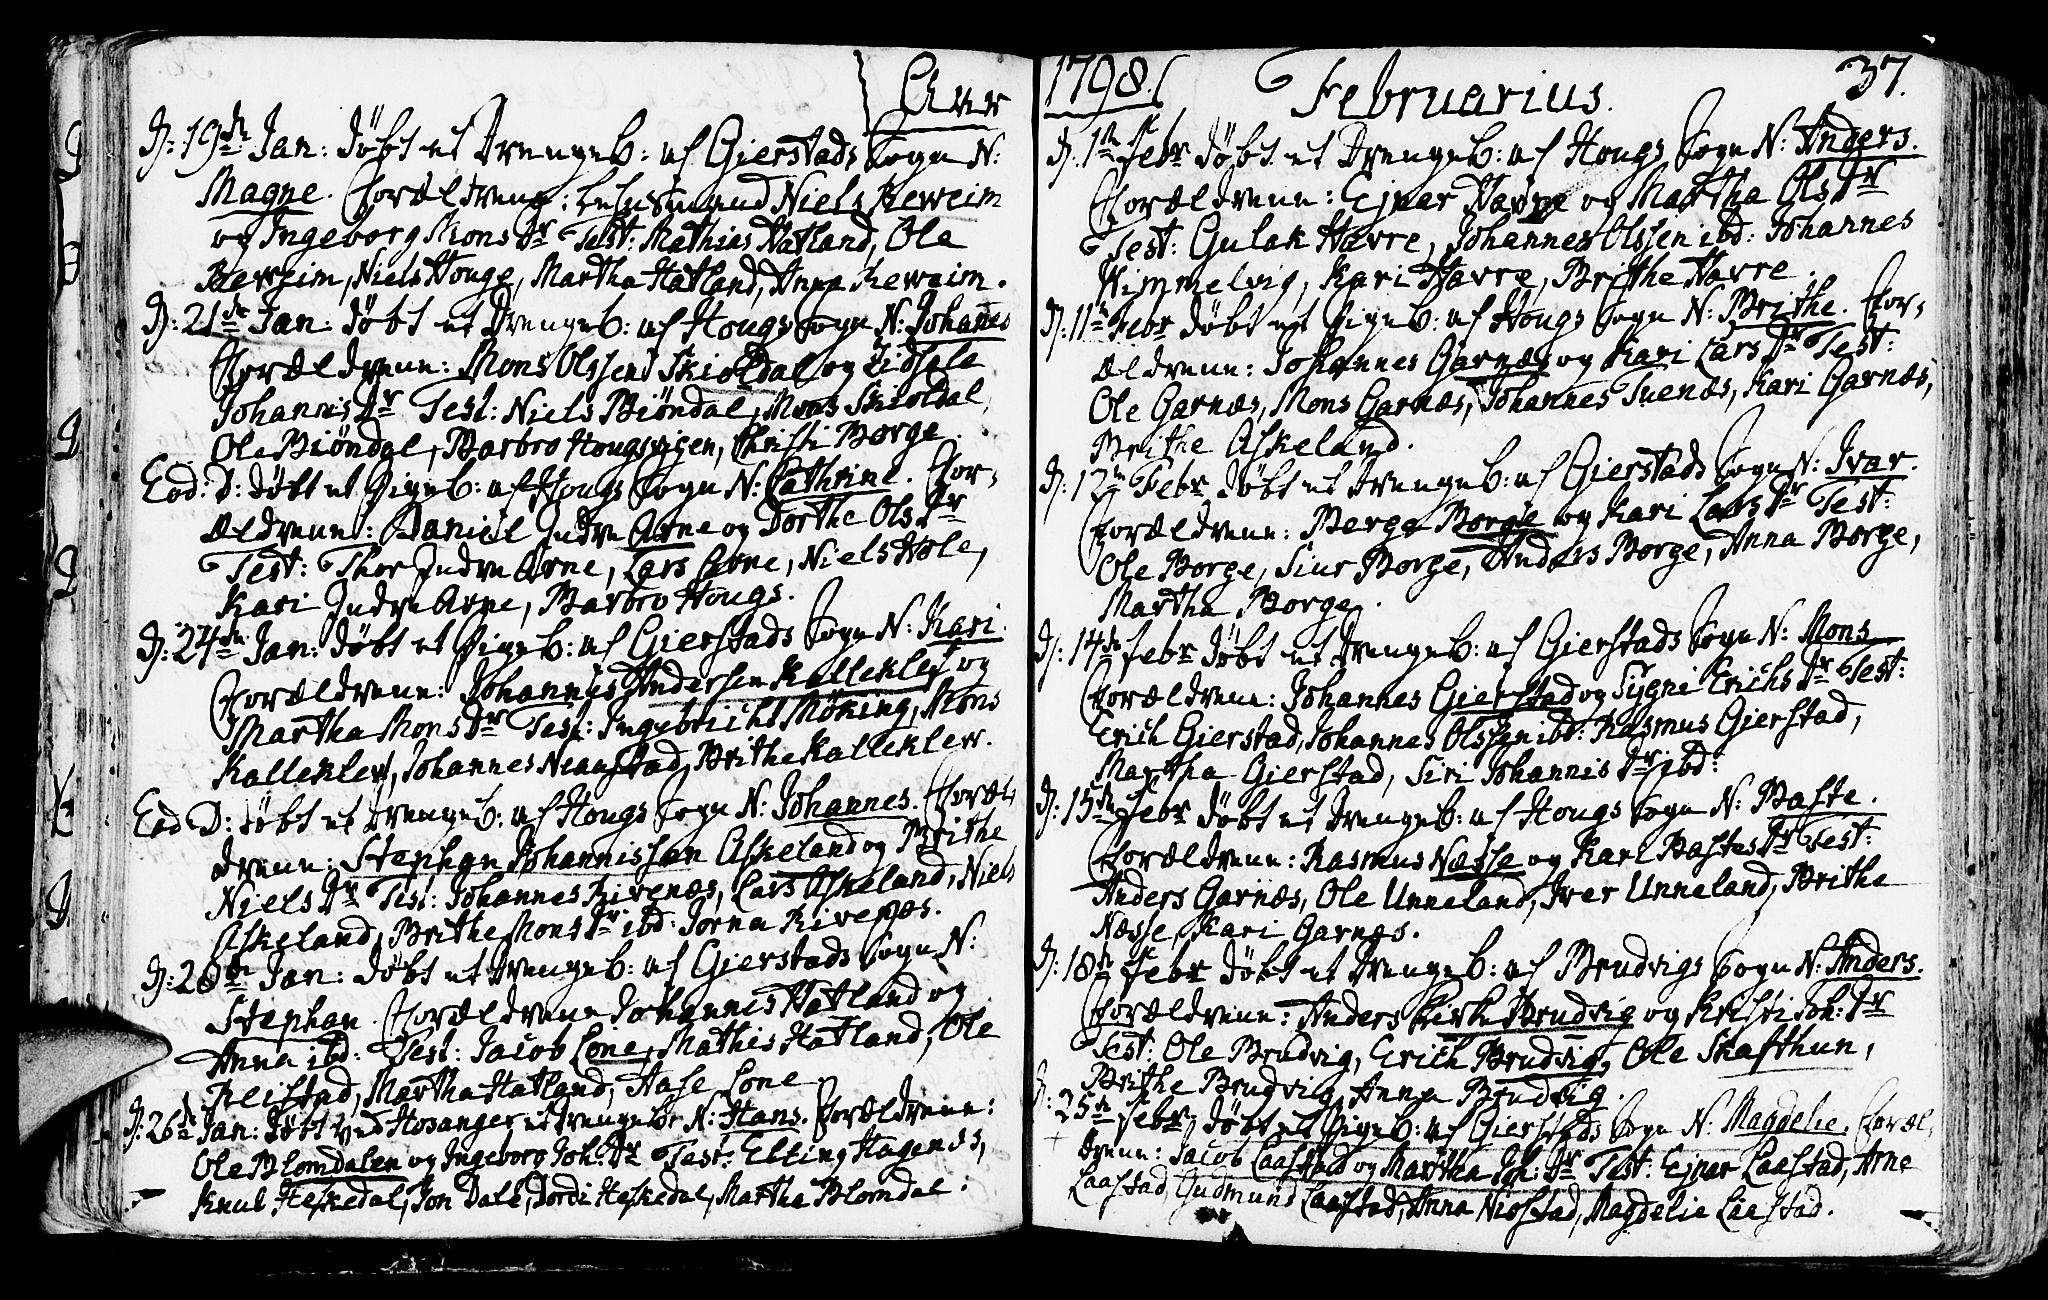 Anno
D: 19de Jan: døbt et Drengeb: af Gierstads Sogn N:
Magne. Forældrene: Niels Reweim
og Ingeborg Mons Dr Test: Mathias Hatland, Ole
Reweim, Niels Houge, Martha Hatland, Anna Reweim.
D: 21de Jan: døbt et Drengeb: af Hougs Sogn N: Johanes
Forældrene: Mons Olssen Skioldal og
Johannis Dr Test: Niels Biöndal, Mons Skioldal,
Ole Biöndal, Barbro Hougsvigen, Christi Borge.
Eod: D: døbt et Pigeb: af Hougs Sogn N: Cathrine. For-
ældrene: Daniel Indre Arne og Dorthe Ols Dr
Test: Thor Indre Arne, Lars Arne, Niels Hole,
Kari Indre Arne, Barbro Hougs.
D: 24de Jan: døbt et Pigeb: af Gierstads Sogn N: Kari.
Forældrene: Johannis Andersen Kalleklef og
Martha Mons Dr Test: Ingebricht Möking, Mons
Kalleklev, Johannes Neaustad, Brithe Kalleklev.
Eod D: døbt et Drengeb: af Hougs Sogn N: Johannes. Foræl-
drene: Stephan Johannissen Askeland og Brithe
Niels Dr Test: Johannes Rivenæs, Lars Askeland, Niels
Askeland, Brithe Mons Dr ibd: Jorna Rivenæs.
D: 26de Jan: døbt et Drengeb: af Gierstads Sogn N:
Stephan. Forældrene Johannis Hatland og
Anna ibd: Test: Jacob Lone, Mathis Hatland, Ole
Reistad, Martha Hatland, Aase Lone
D: 26de Jan: døbt ved Hosanger et Drengeb: N: Hans. Forældrene:
Ole Blomdalen og Ingeborg Joh: Dr Test: Elling Hagenæs,
Knud Heskedal, Jon Dale, Jordi Heskedal, Martha Blomdal.
1798. Februarius. 37.
D: 1te Febr døbt et Drengeb: af Hougs Sogn N: Anders.
Forældrene: Ejnar Havre og Martha Ols Dr
Test: Gulak Havre, Johannes Olssen ibd: Johannes
Wimmelvig, Kari Havre, Brithe Havre.
D: 11te Febr døbt et Pigeb: af Hougs Sogn N: Brithe. For-
ældrene: Johannes Garnæs og Kari Lars Dr Test:
Ole Garnæs, Mons Garnæs, Johannes Tuenæs, Kari Garnæs,
Brithe Askeland.
D: 12te Febr døbt et Drengeb: af Gierstads Sogn N: Ivar.
Forældrene: Berge Borge og Kari Lars Dr Test:
Ole Borge, Siur Borge, Anders Borge, Anna Borge,
Martha Borge.
D: 14de Febr døbt et Drengeb: af Gierstads Sogn N: Mons
Forældrene: Johannes Gierstad og Sygni Erichs Dr Test:
Erich Gierstad, Johannes Olssen ibd: Rasmus Gierstad,
Martha Gierstad, Siri Johannis Dr ibd:
D: 15de Febr døbt et Drengeb: af Hougs Sogn N: Baste.
Forældrene: Rasmus Næsse og Kari Bastes Dr Test:
Anders Garnæs, Ole Unneland, Iver Unneland, Brithe
Næsse, Kari Garnæs.
D: 18de Febr døbt et Drengeb: af Brudvigs Sogn N: Anders.
Forældrene: Anders Kirke Brudvig og Kristi Joh: Dr
Test: Ole Brudvig, Erich Brudvig, Ole Skafthun,
Brithe Brudvig, Anna Brudvig.
D: 25de Febr døbt et Pigeb: af Gierstads Sogn N: Magdelie. Foræl-
drene: Jacob Laastad og Martha Joh: Dr Test: Ejnar Laastad, Arne
Laastad, Gudmund Laastad, Anna Niostad, Magdelie Laastad.